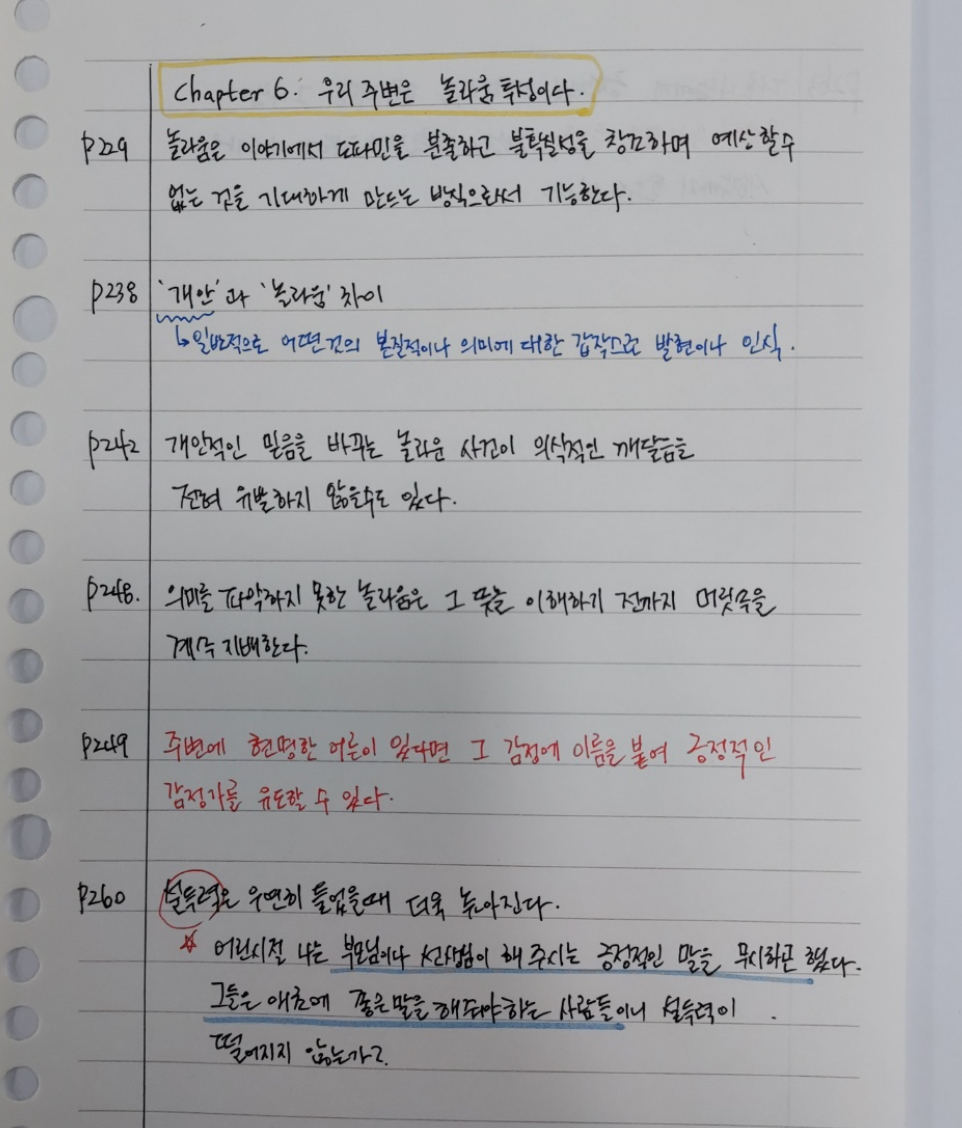 Chapter 6. 우리 주변은 놀라움 투성이다.
p229 놀라움은 이야기에서 도파민을 분출하고 불확실성을 창조하며 예상할수
없는 것을 기대하게 만드는 방식으로써 기능한다.
p238 '개안'과 '놀라움' 차이
↳일반적으로 어떤것의 본질적이나 의미에 대한 갑작스런 발현이나 인식.
p242 개인적인 믿음을 바꾸는 놀라운 사건이 의식적인 깨달음을
전혀 유발하지 않을수도 있다.
p248. 의미를 파악하지 못한 놀라움은 그 뜻을 이해하기 전까지 머릿속을
계속 지배한다.
p249 주변에 현명한 어른이 있다면 그 감정에 이름을 붙여 긍정적인
감정가를 유도할 수 있다.
p260 설득력은 우연히 들었을때 더욱 높아진다.
☆ 어린시절 나는 부모님이나 선생님이 해 주시는 긍정적인 말을 무시하곤 했다.
그들은 애초에 좋은 말을 해줘야하는 사람들이니 설득력이
떨어지지 않는가?